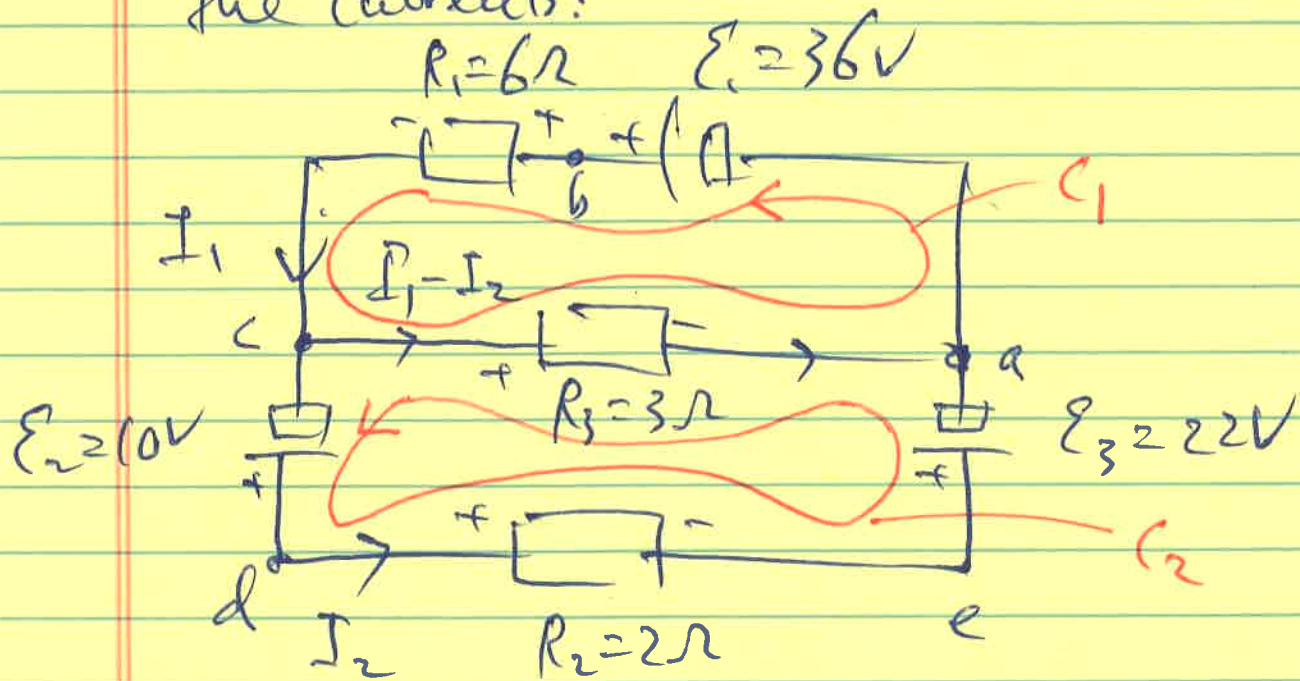 the currents.
R₁=6Ω ℰ₁=36V
- + +
b
C₁
I₁
I₁-I₂
c
+ -
a
R₃=3Ω
ℰ₂=10V
ℰ₃=22V
+ +
+ -
C₂
d
e
I₂
R₂=2Ω